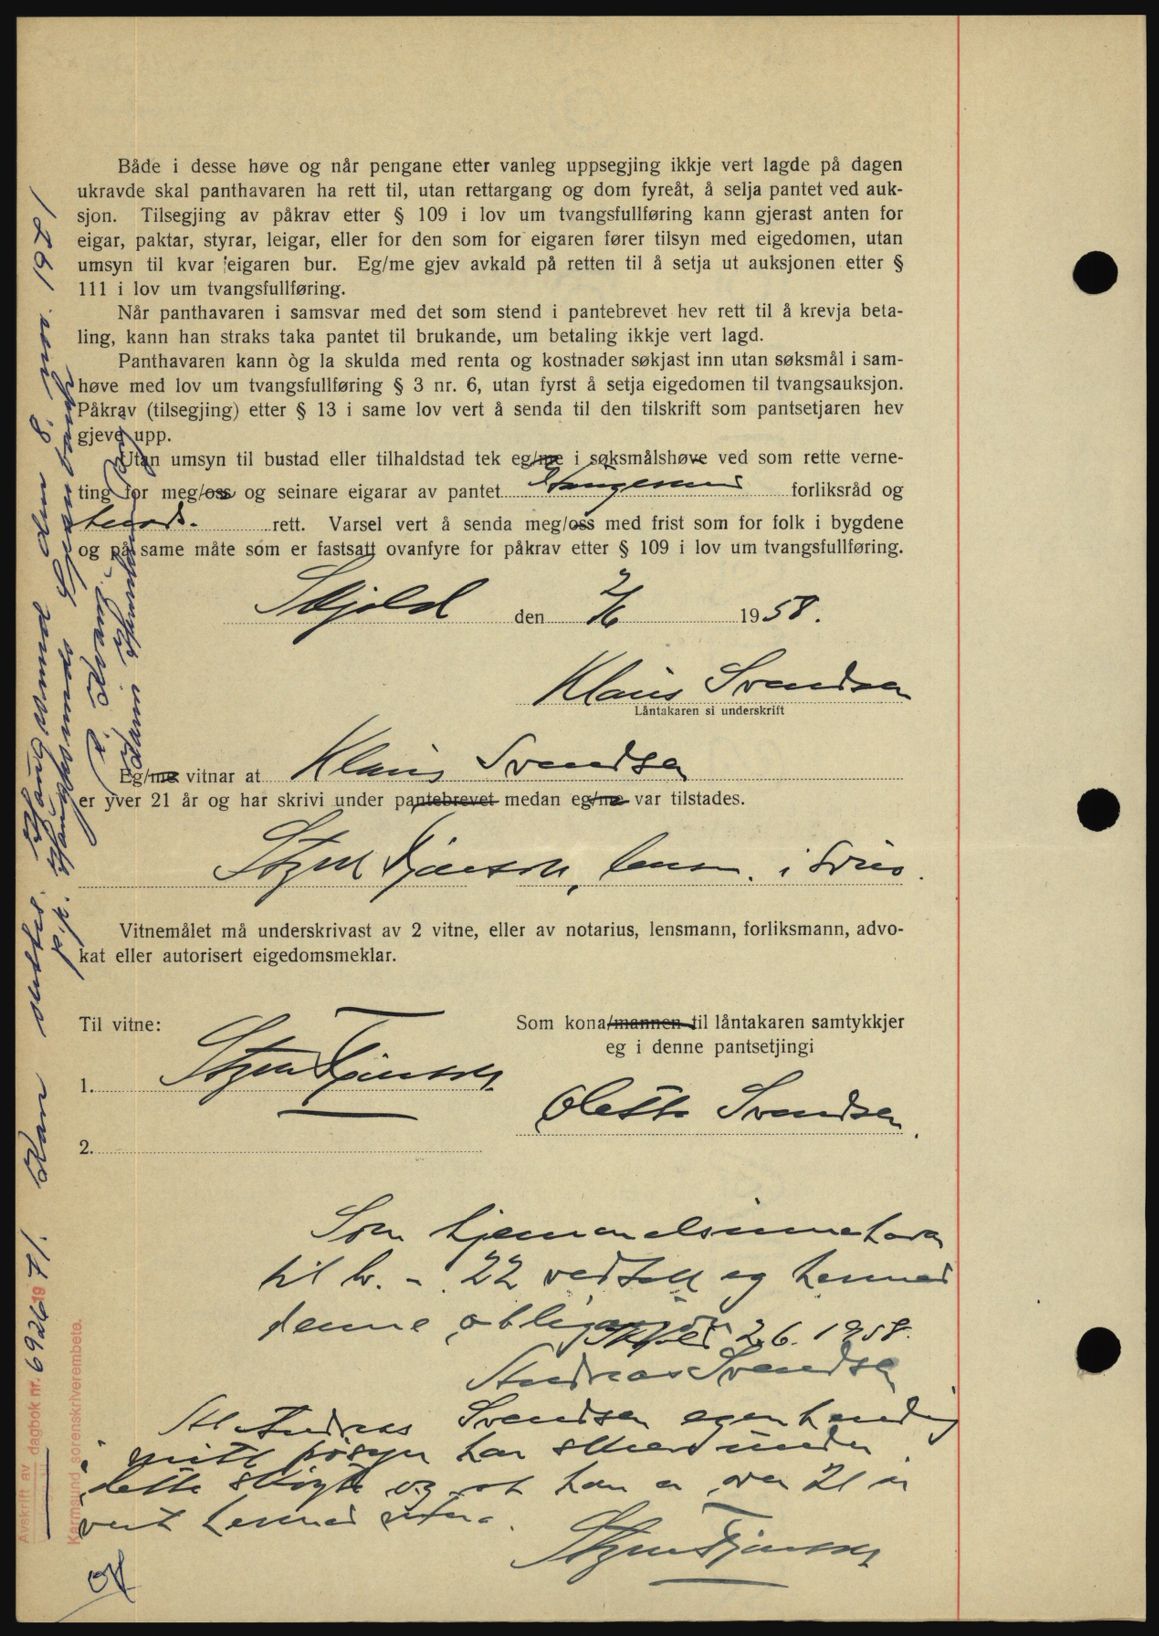 Både i desse høve og når pengane etter vanleg uppsegjing ikkje vert lagde på dagen
ukravde skal panthavaren ha rett til, utan rettargang og dom fyreåt, å selja pantet ved auk-
sjon. Tilsegjing av påkrav etter § 109 i lov um tvangsfullføring kann gjerast anten for
eigar, paktar, styrar, leigar, eller for den som for eigaren fører tilsyn med eigedomen, utan
umsyn til kvar eigaren bur. Eg/me gjev avkald på retten til å setja ut auksjonen etter §
111 i lov um tvangsfullføring.
Når panthavaren i samsvar med det som stend i pantebrevet hev rett til å krevja beta-
ling, kann han straks taka pantet til brukande, um betaling ikkje vert lagd.
Panthavaren kann òg la skulda med renta og kostnader søkjast inn utan søksmål i sam-
høve med lov um tvangsfullføring § 3 nr. 6, utan fyrst å setja eigedomen til tvangsauksjon.
Påkrav (tilsegjing) etter § 13 i same lov vert å senda til den tilskrift som pantsetjaren hev
gjeve upp.
Utan umsyn til bustad eller tilhaldstad tek eg/me i søksmålshøve ved som rette verne-
ting for meg/oss og seinare eigarar av pantet Haugesund forliksråd og
herads- rett. Varsel vert å senda meg/oss med frist som for folk i bygdene
og på same måte som er fastsatt ovanfyre for påkrav etter § 109 i lov um tvangsfullføring.
Skjold den 2/6 1958.
Klaus Svendsen
Låntakaren si underskrift
Eg/me vitnar at Klaus Svendsen
er yver 21 år og har skrivi under pantebrevet medan eg/me var tilstades.
lensm. i
Vitnemålet må underskrivast av 2 vitne, eller av notarius, lensmann, forliksmann, advo-
kat eller autorisert eigedomsmeklar.
Til vitne:
Som kona/mannen til låntakaren samtykkjer
eg i denne pantsetjingi
1.
Svendsen
2.
Som hjemmelsinnehaver
til br. - 22 vedtek eg hermed
denne obligasjon
Skjold 2.6. 1958.
Andreas Svendsen
At Andreas Svendsen egenhendig
i mitt påsyn har skrevet under
dette skøyte og at han er over 21 år
vert hermed
Kan slettes. Haugesund den 8. mai 1971
p.p. Haugesunds Sparebank
Avskrift av dagbok nr. 6926 1971.
Karmsund sorenskriverembete.